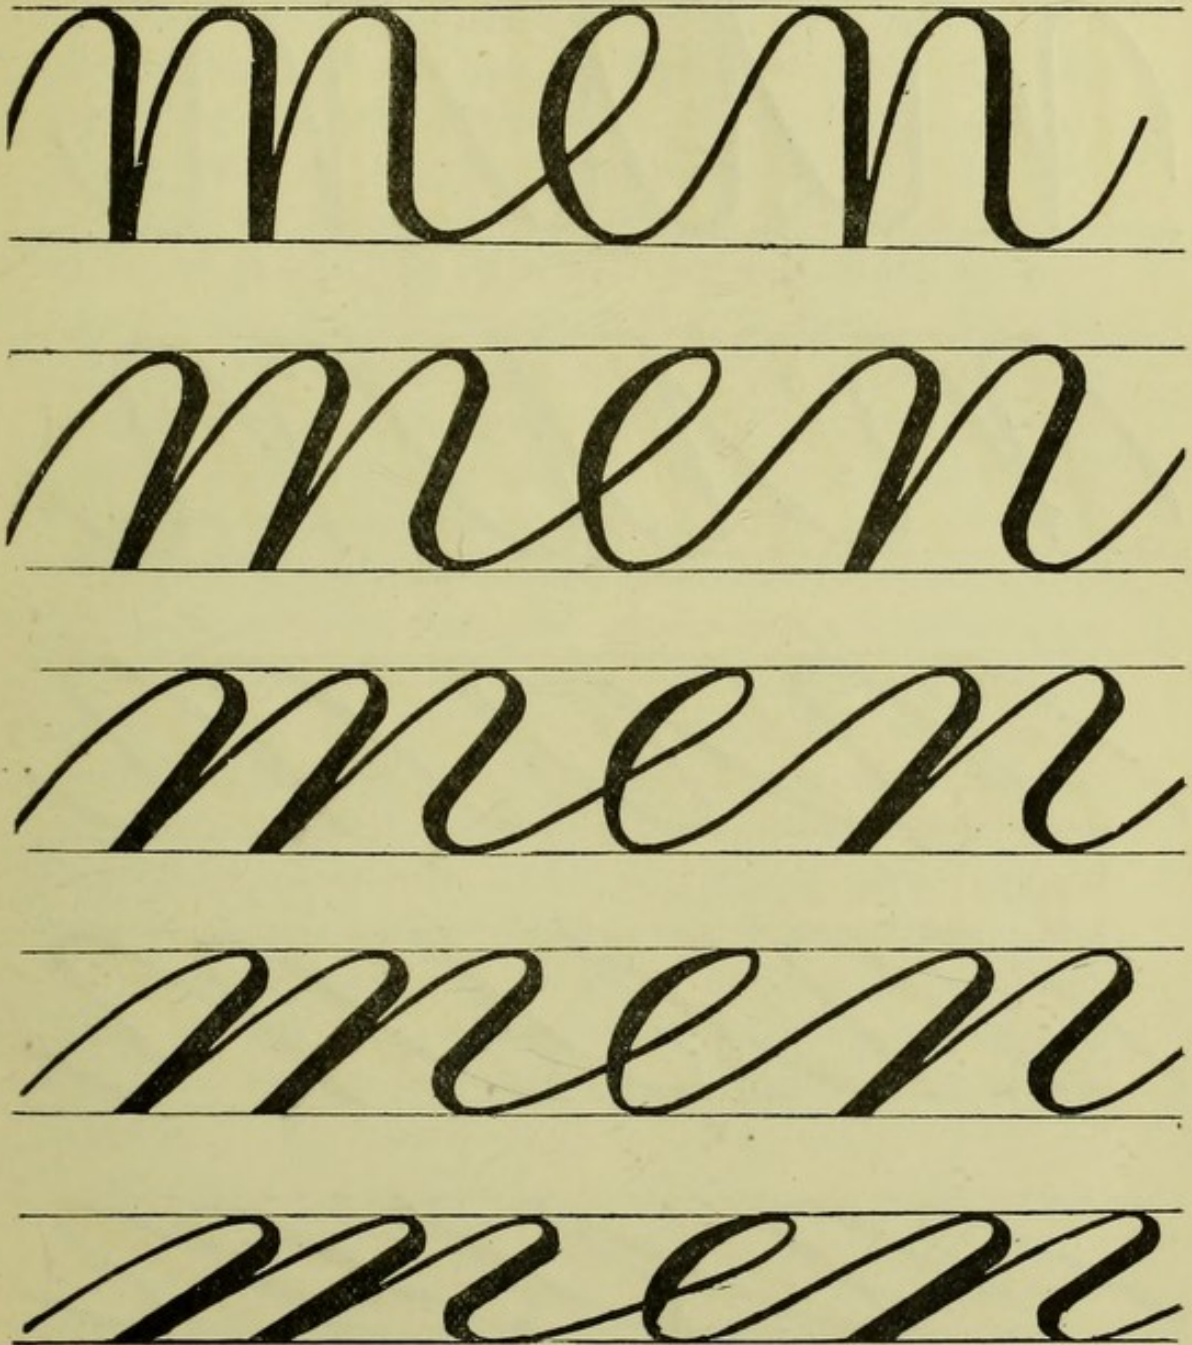 men
men
men
men
men